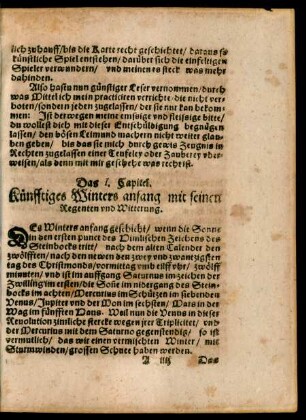 lich zuhauff/bis die Karte recht geschichtet/ daraus so
künstliche Spiel entstehen/darüber sich die einfeltigen
Spieler verwundern/ vnd meinen es steck was mehr
dahinden.
Also hastu nun günstiger Leser vernommen/durch
was Mittel ich mein practiciren verrichte die nicht verboten/
sondern jeden zugelassen/der sie nur kan bekommen:
Ist derwegen meine emsige vnd fleissige bitte/
du wollest dich mit dieser Entschüldigung begnügen
lassen/den bösen Leimund machern nicht weiter glauben
geben/ bis das sie mich durch gewis Zeugnis in
Rechten zugelassen einer Teufeley oder Zauberey vberweisen/
als denn mit mir geschehe was recht ist.
Das 1. Capitel.
Künfftiges Winters anfang mit seinen
Regenten vnd Witterung.
DEs Winters anfang geschicht/ wenn die Sonne
in den ersten punct des Himlischen Zeichens des
Steinbocks trit/ nach dem alten Calender den
zwölfften/nach den newen den zwey vnd zwantzigsten
tag des Christmonds/vormittag vmb eilff vhr/ zwölff
minuten/ vnd ist im auffgang Saturnus im zeichen der
Zwilling im ersten/die Sonne im nidergang des Steinbocks
im achten/Mercurius im Schützen im siebenden
Venus/Jupiter vnd der Mon im sechsten/ Mars in der
Wag im fünfften Haus. Weil nun die Venus in dieser
Revolution zimliche stercke wegen jrer Triplicitet/ vnd
der Mercurius mit dem Saturno gegenstendig/ so ist
vermutlich/ das wir einen vermischten Winter/ mit
Sturmwinden/grossen Schnee haben werden.
A iiij Das